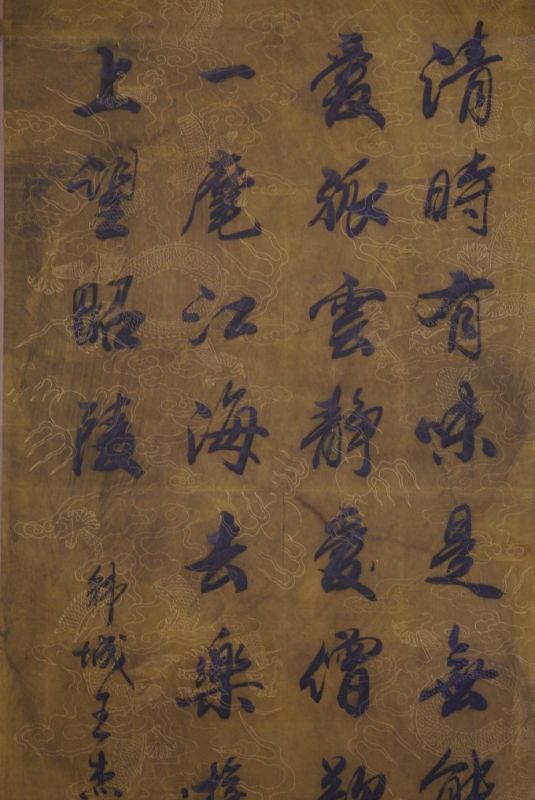 清時有味是無能
愛孤雲靜愛僧
一麾江海去樂遊
上望昭陵
韓城王杰